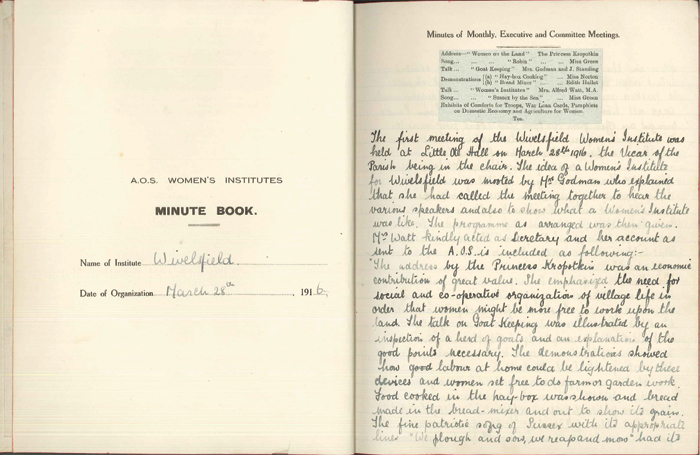 A.O.S. WOMEN'S INSTITUTES
MINUTE BOOK.
Name of Institute Wivelsfield.
Date of Organization March 28th, 1916.
Minutes of Monthly, Executive and Committee Meetings.
Address—"Women on the Land" The Princess Kropotkin
Song... ... "Robin" ... ... Miss Green
Talk ... "Goat Keeping" Mrs. Godman and J. Standing
Demonstrations {(a) "Hay-box Cooking" ... Miss Norton
(b) "Bread Mixer" ... Edith Hallet
Talk ... "Women's Institutes" Mrs. Alfred Watt, M.A.
Song... ... "Sussex by the Sea" ... Miss Green
Exhibits of Comforts for Troops, War Loan Cards, Pamphlets
on Domestic Economy and Agriculture for Women.
Tea.
The first meeting of the Wivelsfield Women's Institute was
held at Little Ote Hall on March 28th 1916, the Vicar of the
Parish being in the chair. The idea of a Women's Institute
for Wivelsfield was mooted by Mrs Godman who explained
that she had called the meeting together to hear the
various speakers and also to show what a Women's Institute
was like. The programme as arranged was then given.
Mrs Watt kindly acted as Secretary and her account as
sent to the A.O.S. is included as following:-
"The address by the Princess Kropotkin was an economic
contribution of great value. She emphasized the need for
social and co-operative organization of village life in
order that women might be more free to work upon the
land. The talk on Goat Keeping was illustrated by an
inspection of a herd of goats and an explanation of the
good points necessary. The demonstrations showed
how good labour at home could be lightened by these
devices and women set free to do farm or garden work.
Food cooked in the hay-box was shown and bread
made in the bread-mixer and cut to show its grain.
The fine patriotic song of Sussex with its appropriate
lines "We plough and sow, we reap and mow" had its